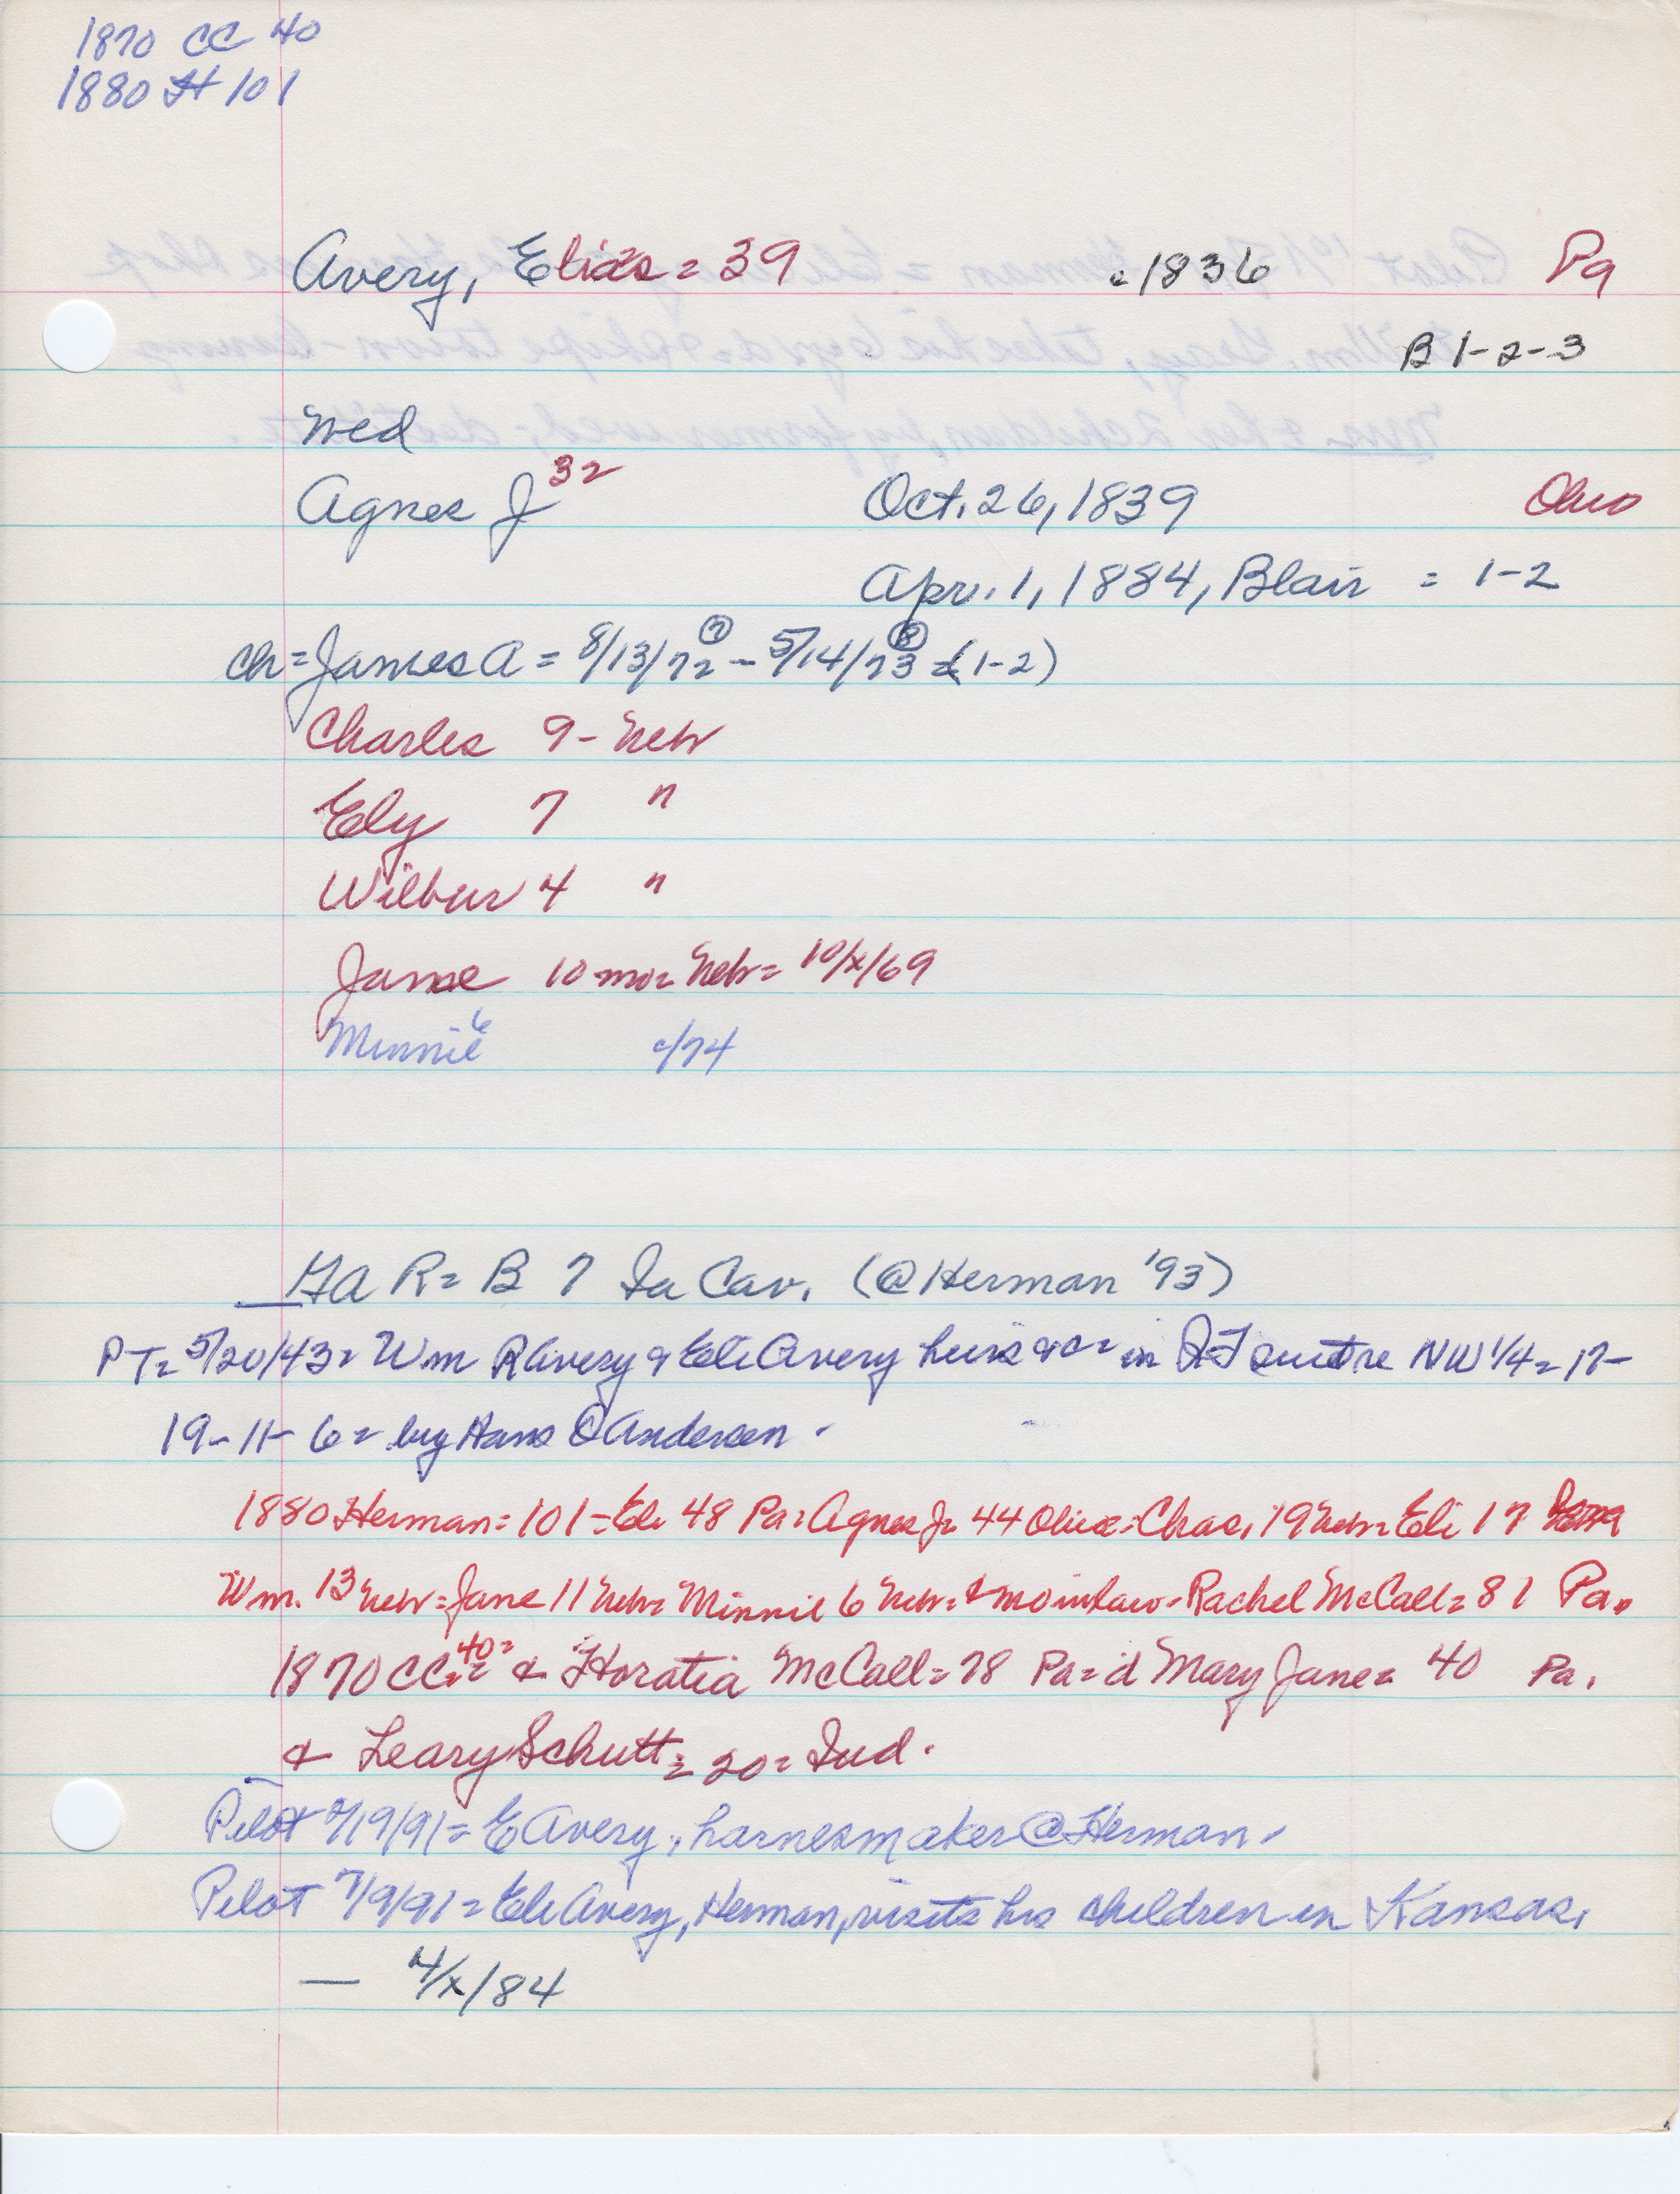 1870 CC 40
1880 H 101
Avery, Elias = 39 c 1836 Pa
B 1-2-3
Wed
Agnes J 32 Oct. 26, 1839 Ohio
Apr. 1, 1884, Blair = 1-2
ch = James A = 8/13/72 (7) - 5/14/73 (8) = (1-2)
Charles 9 - Nebr
Ely 7 "
Wilbur 4 "
Jane 10 mo = Nebr = 10/x/69
Minnie 6 c/74
GAR = B 7 Ia Cav. (@ Herman '93)
PT = 5/20/43 = Wm R Avery & Eli Avery heirs &c = in NW 1/4 = 17-
19-11-6 = by Hans O Andersen.
1880 Herman = 101 = Eli 48 Pa = Agnes J = 44 Ohio = Chas. 19 Nebr = Eli 17
Wm. 13 Nebr = Jane 11 Nebr = Minnie 6 Nebr = & mo in law - Rachel McCall = 81 Pa.
1870 CC = 40 = & Horatia McCall = 78 Pa = d Mary Jane = 40 Pa.
& Leary Schutt = 20 = Ind.
Pilot 2/19/91 = E Avery, harnessmaker @ Herman.
Pilot 7/9/91 = Eli Avery, Herman, visits his children in Kansas.
— 4/x/84